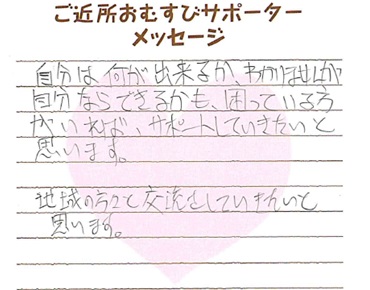 ご近所おむすびサポーター
メッセージ
自分は何が出来るか、わかりませんが
自分ならできるかも、困っている方
がいれば、サポートしていきたいと
思います。
地域の方々と交流をしていきたいと
思います。